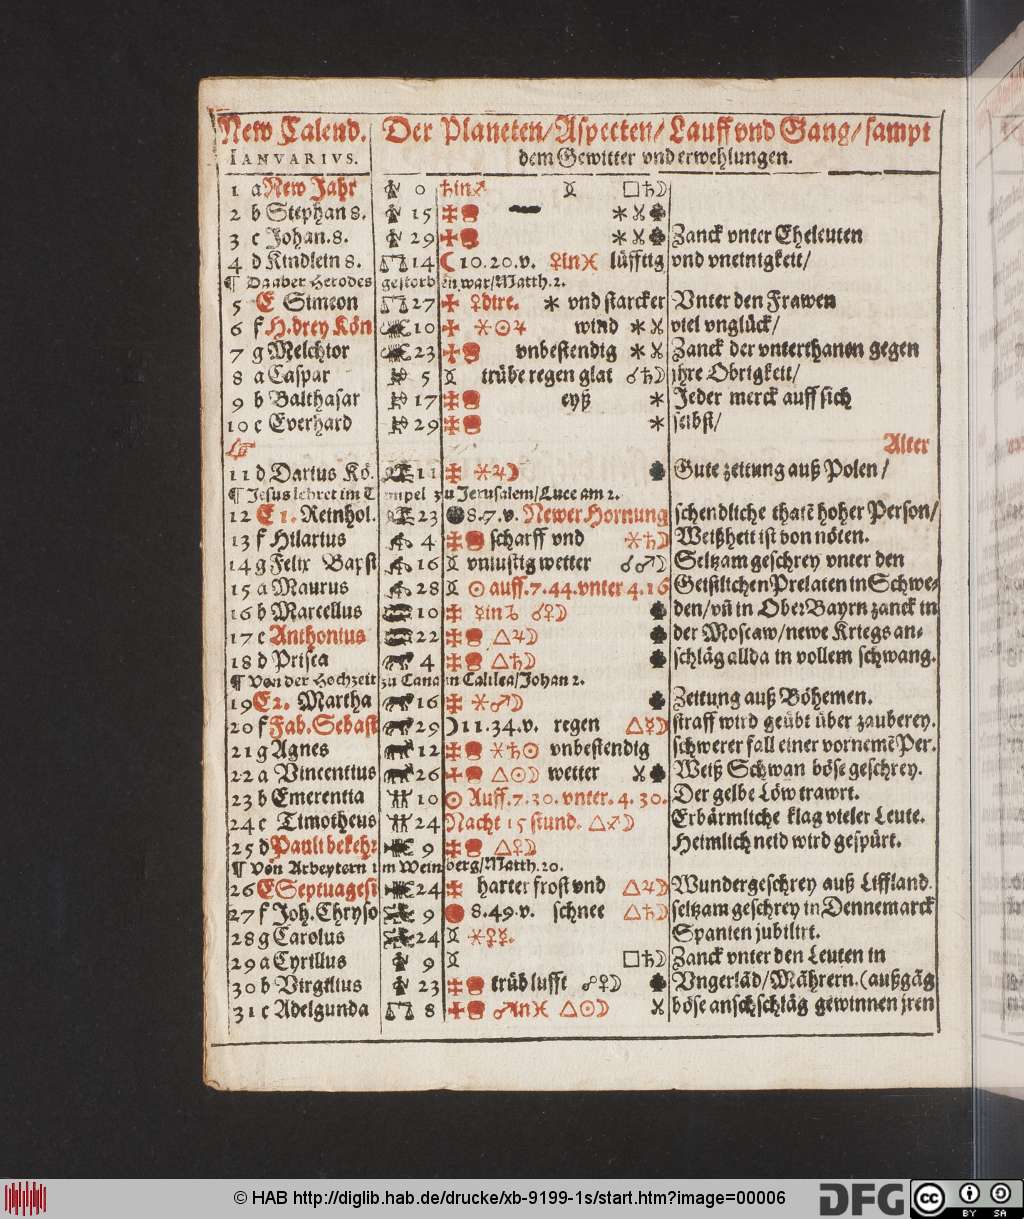 New Calend. Der Planeten/Aspecten/Lauff vnd Gang/sampt
IANVARIVS. dem Gewitter vnd erwehlungen.
1 a New Jahr 0 ♄in♐ □♄☽
2 b Stephan 8. 15 ✠ ⚹
3 c Johan. 8. 29 ✠ ⚹ Zanck vnter Eheleuten
4 d Kindlein 8. 14 ☾10.20.v. ♀in♓ lüfftig vnd vneinigkeit/
¶ Da aber Herodes gestorben war/Matth. 2.
5 E Simeon 27 ✠ ♀dire. ⚹ vnd starcker Vnter den Frawen
6 f H. drey Kön 10 ✠ ⚹☉♃ wind ⚹ viel vnglück/
7 g Melchior 23 ✠ vnbestendig ⚹ Zanck der vnterthanen gegen
8 a Caspar 5 ♊ trübe regen glat ☌♄☽ jhre Obrigkeit/
9 b Balthasar 17 ✠ eyß ⚹ Jeder merck auff sich
10 c Everhard 29 ✠ ⚹ selbst/
Alter
11 d Darius Kö. 11 ✠ ⚹♃☽ Gute zeitung auß Polen/
¶ Jesus lehret im Tempel zu Jerusalem/Luce am 2.
12 E 1. Reinhol. 23 8.7.v. Newer Hornung schendliche thatē hoher Person/
13 f Hilarius 4 ✠ scharff vnd ⚹♄☽ Weißheit ist von nöten.
14 g Felix Bapst 16 ♊ vnlustig wetter ☌♂☽ Seltzam geschrey vnter den
15 a Maurus 28 ♊ ☉ auff. 7.44. vnter 4.16 Geistlichen Prelaten in Schwe-
16 b Marcellus 10 ✠ ☿in♑ ☌♀☽ den/vñ in OberBayrn zanck in
17 c Anthonius 22 ✠ △♃☽ der Moscaw/newe Kriegs an-
18 d Prisca 4 ✠ △♄☽ schläg allda in vollem schwang.
¶ Von der Hochzeit zu Cana in Calilea/Johan 2.
19 E 2. Martha 16 ✠ ⚹♂☽ Zeitung auß Böhemen.
20 f Fab. Sebast 29 ☽11.34.v. regen △☿☽ straff wird geübt über zauberey.
21 g Agnes 12 ✠ ⚹♄☉ vnbestendig schwerer fall einer vornemē Per.
22 a Vincentius 26 ✠ △☉☽ wetter Weiß Schwan böse geschrey.
23 b Emerentia 10 ☉ Auff. 7.30. vnter. 4.30. Der gelbe Löw trawrt.
24 c Timotheus 24 Nacht 15 stund. △♐☽ Erbärmliche klag vieler Leute.
25 d Pauli bekehr 9 ✠ △♀☽ Heimlich neid wird gespürt.
¶ Von Arbeytern im Weinberg/Matth. 20.
26 E Septuagesi 24 ✠ harter frost vnd △♃☽ Wundergeschrey auß Liffland.
27 f Joh. Chryso 9 8.49.v. schnee △♄☽ seltzam geschrey in Dennemarck
28 g Carolus 24 ♊ ⚹♀☿. Spanien jubilirt.
29 a Cyrillus 9 ♊ □♄☽ Zanck vnter den Leuten in
30 b Virgilius 23 ✠ trüb lufft ☍♀☽ Vngerläd/Mährern.(außgäg
31 c Adelgunda 8 ✠ ♂in♓ △☉☽ böse anschschläg gewinnen jren
© HAB http://diglib.hab.de/drucke/xb-9199-1s/start.htm?image=00006
DFG
cc
BY SA